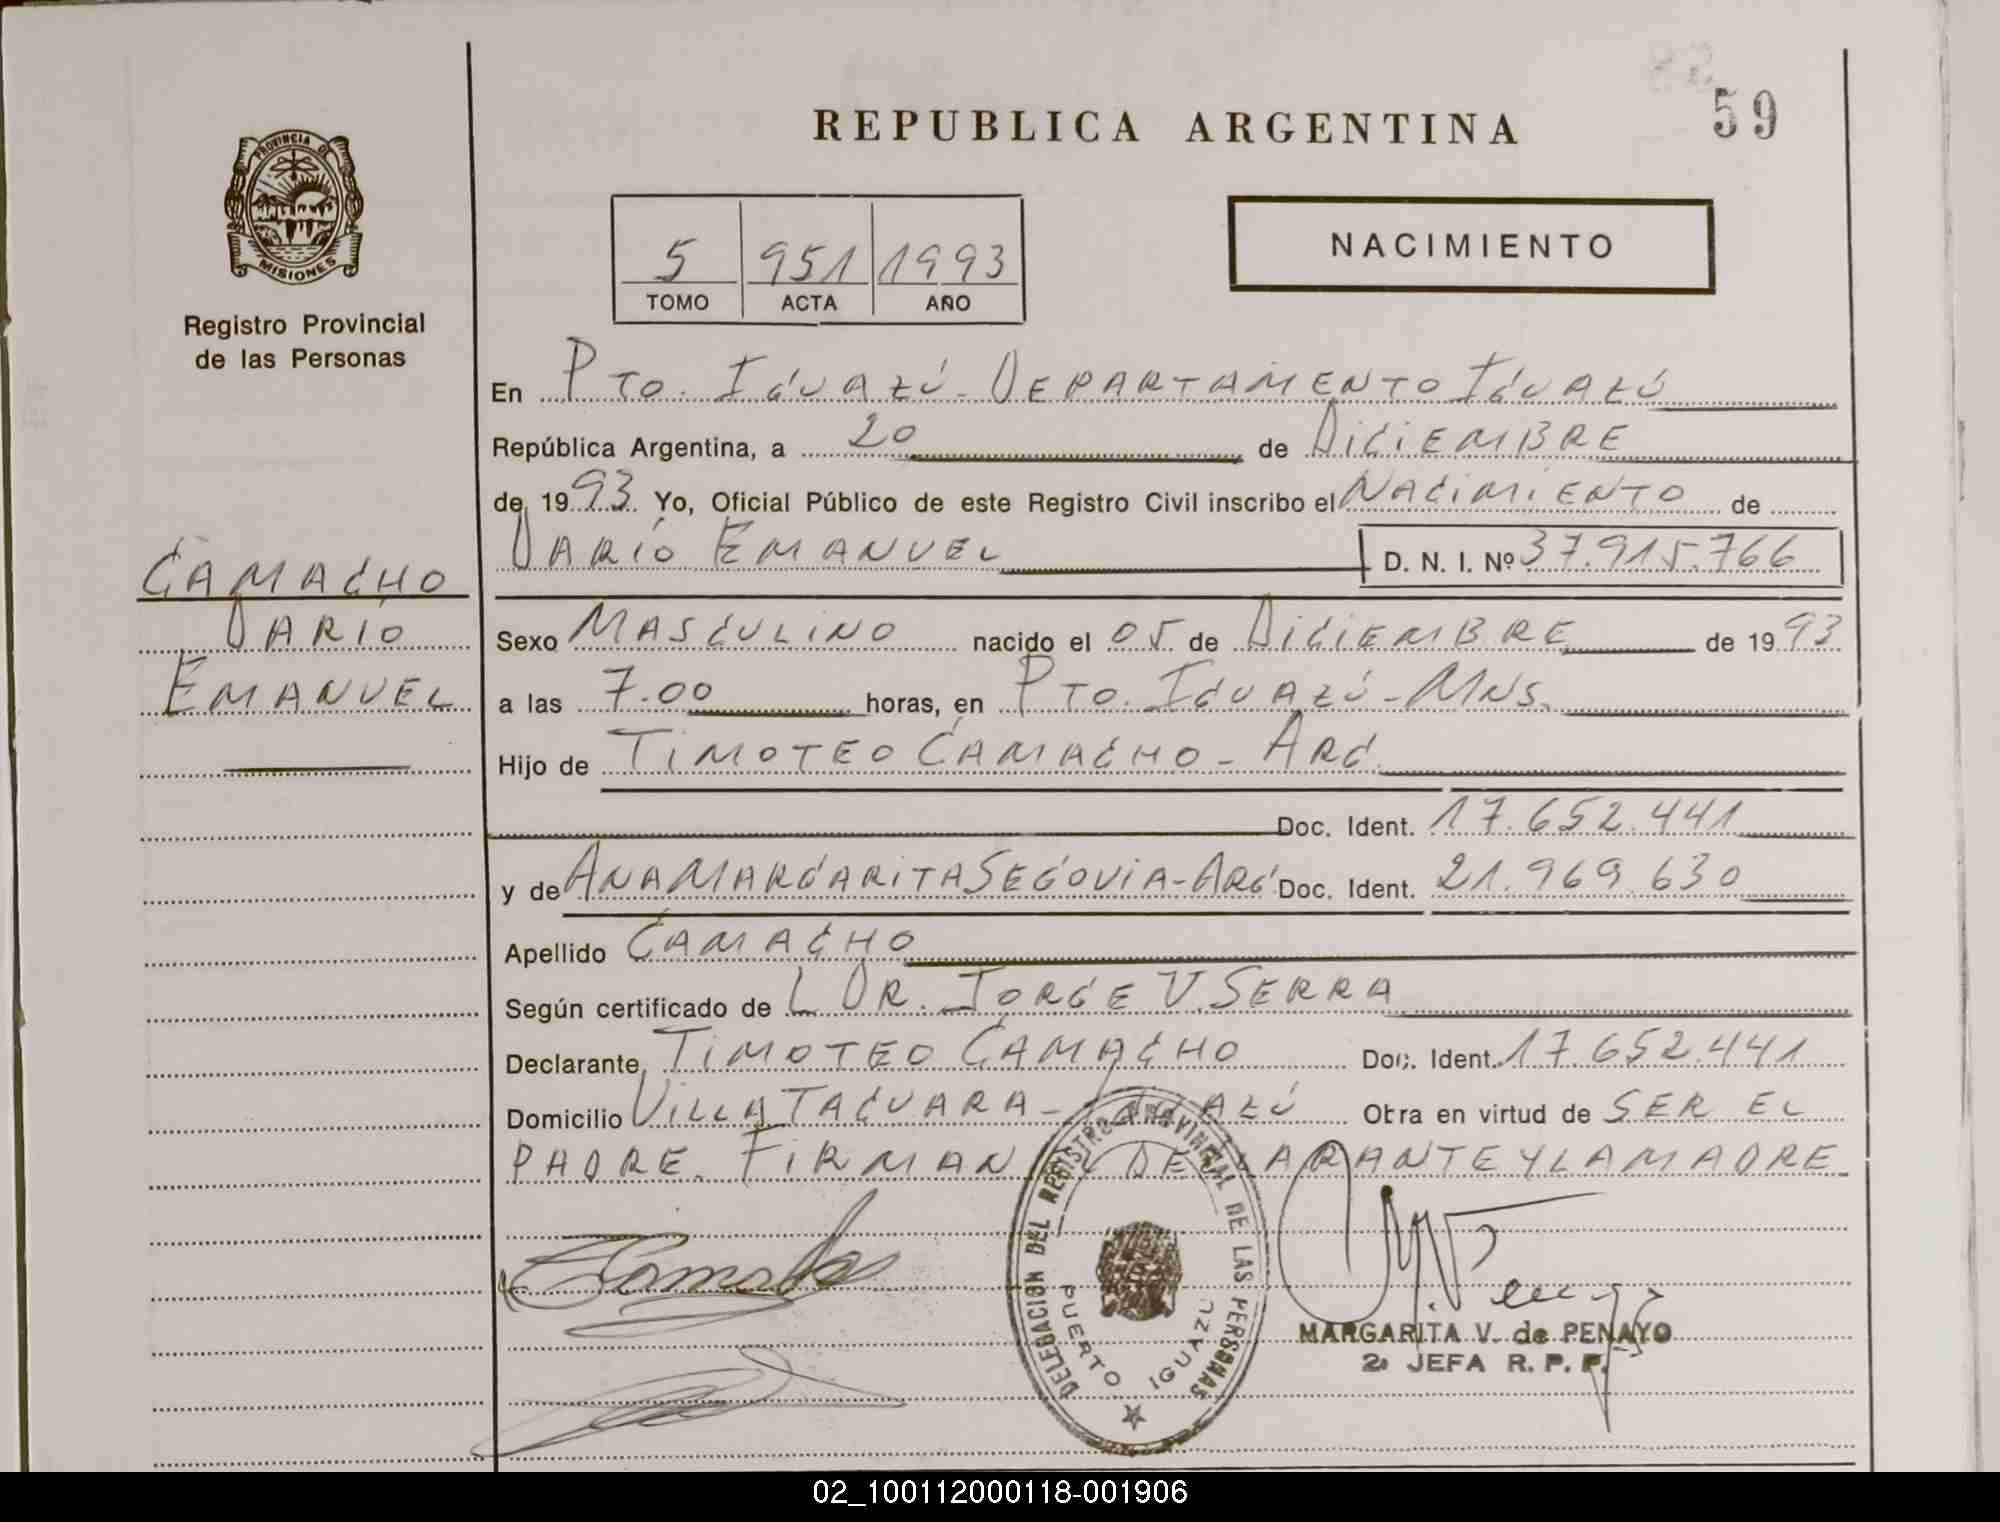 REPUBLICA ARGENTINA
59
PROVINCIA DE
MISIONES
Registro Provincial
de las Personas
5 951 1993
TOMO ACTA AÑO
NACIMIENTO
En PTO. IGUAZÚ - DEPARTAMENTO IGUAZÚ
República Argentina, a 20 de DICIEMBRE
de 1993. Yo, Oficial Público de este Registro Civil inscribo el NACIMIENTO de
DARÍO EMANUEL D. N. I. Nº 37.915.766
CAMACHO
DARÍO
EMANUEL
Sexo MASCULINO nacido el 05 de DICIEMBRE de 1993
a las 7.00 horas, en PTO. IGUAZÚ - MNS.
Hijo de TIMOTEO CAMACHO - ARG.
Doc. Ident. 17.652.441
y de ANA MARGARITA SEGOVIA - ARG. Doc. Ident. 21.969.630
Apellido CAMACHO
Según certificado de L DR. JORGE V. SERRA
Declarante TIMOTEO CAMACHO Doc. Ident. 17.652.441
Domicilio VILLA TACUARA - IGUAZÚ Obra en virtud de SER EL
PADRE. FIRMAN DECLARANTE Y LA MADRE
DELEGACION DEL REGISTRO PROVINCIAL DE LAS PERSONAS
PUERTO IGUAZU
MARGARITA V. de PENAYO
2ª JEFA R. P. P.
02_100112000118-001906